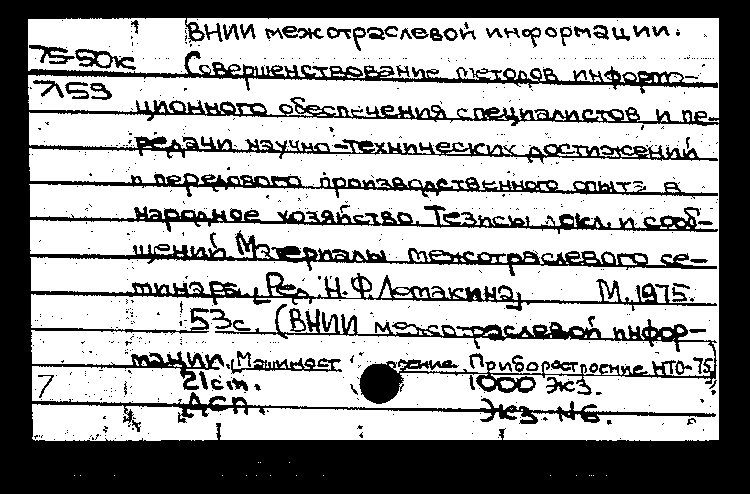 ВНИИ межотраслевой информации.
75-50к Совершенствование методов информа-
7159 ционного обеспечения специалистов и пе-
редачи научно-технических достижений
и передового производственного опыта в
народное хозяйство. Тезисы докл. и сооб-
щений Материалы межотраслевого се-
минара. [Ред. Н.Ф. Ломакина]. М., 1975.
53с. (ВНИИ межотраслевой инфор-
мации. (Машиност роение. Приборостроение НТО-75)
7 21см. 1000 экз.
ДСП. Экз. №6.